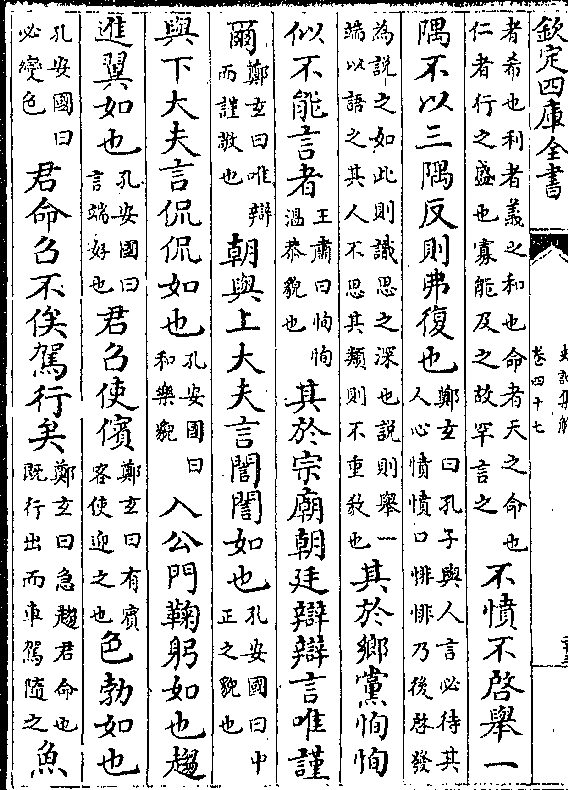 欽定四庫全書
史記集解
卷四十七
者希也利者義之和也命者天之命也
仁者行之盛也寡能及之故罕言之
不憤不啓舉一
隅不以三隅反則弗復也
鄭玄曰孔子與人言必待其
人心憤憤口悱悱乃後啓發
為說之如此則識思之深也說則舉一
端以語之其人不思其類則不重教也
其於鄉黨恂恂
似不能言者
王肅曰恂恂
溫恭貌也
其於宗廟朝廷辯辯言唯謹
爾
鄭玄曰唯辯
而謹敬也
朝與上大夫言誾誾如也
孔安國曰中
正之貌也
與下大夫言侃侃如也
孔安國曰
和樂貌
入公門鞠躬如也趨
進翼如也
孔安國曰
言端好也
君召使儐
鄭玄曰有賓
客使迎之也
色勃如也
孔安國曰
必變色
君命召不俟駕行矣
鄭玄曰急趨君命也
既行出而車駕隨之
魚